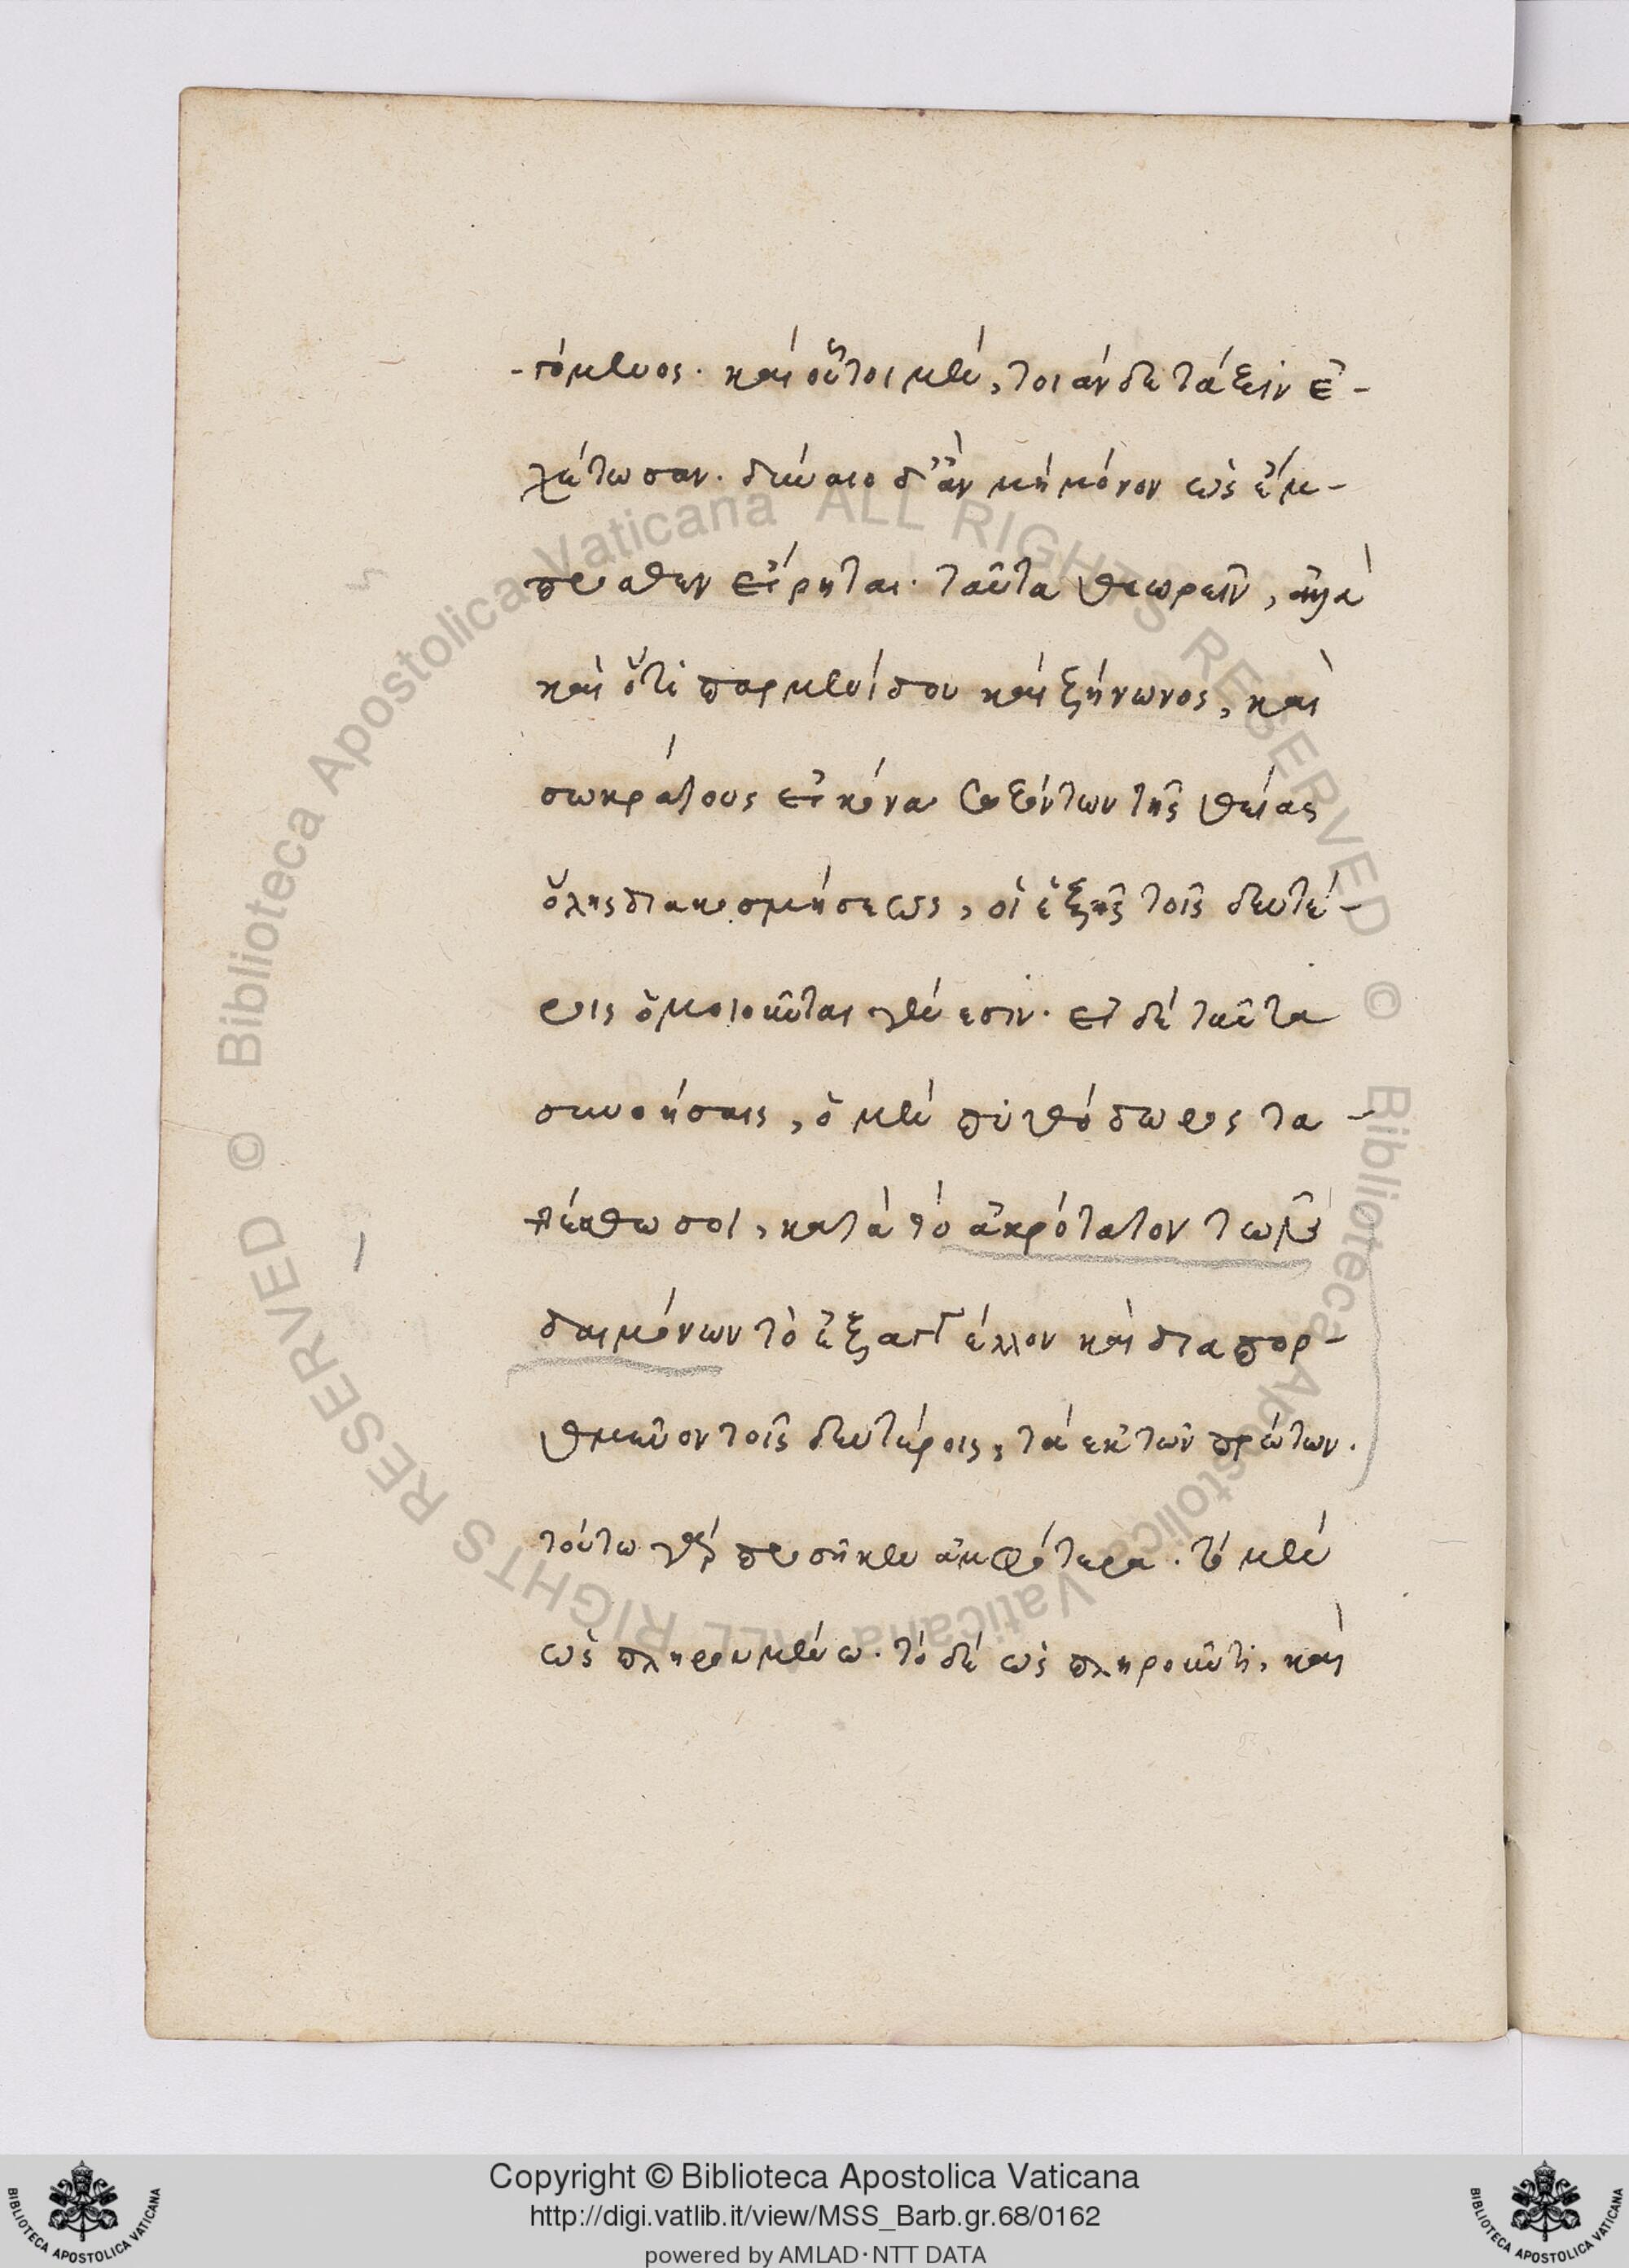 -πόμενος. καὶ οὗτοι μὲν, τοιάνδε τάξιν ἐ-
χέτωσαν. δέκαιο δ' ἂν μὴ μόνον ὡς ἔμ-
προσθεν εἴρηται. ταῦτα θεωρεῖν, ἀλλὰ
καὶ ὅτι παρμενίδου καὶ ζήνωνος, καὶ
σωκράτους εἰκόνα σωζόντων τῆς θείας
ὅλης διακοσμήσεως, οἱ ἑξῆς τοῖς δευτέ-
ροις ὁμοιοῦνται γένεσιν. εἰ δὲ ταῦτα
συννοήσαις, ὁ μὲν πυθόδωρος τε-
τάχθω σοι, κατὰ τὸ ἀκρότατον τῶν
δαιμόνων τὸ ἐξαγγέλλον καὶ διαπορ-
θμεῦον τοῖς δευτέροις, τὰ ἐκ τῶν πρώτων.
τούτω γὰρ προσῆκεν ἀμφότερα. τὸ μὲν
ὡς πληρουμένω. τὸ δὲ ὡς πληροῦντι, καὶ
Copyright © Biblioteca Apostolica Vaticana
http://digi.vatlib.it/view/MSS_Barb.gr.68/0162
powered by AMLAD·NTT DATA
BIBLIOTECA APOSTOLICA VATICANA
BIBLIOTECA APOSTOLICA VATICANA
© Biblioteca Apostolica Vaticana ALL RIGHTS RESERVED © Biblioteca Apostolica Vaticana ALL RIGHTS RESERVED